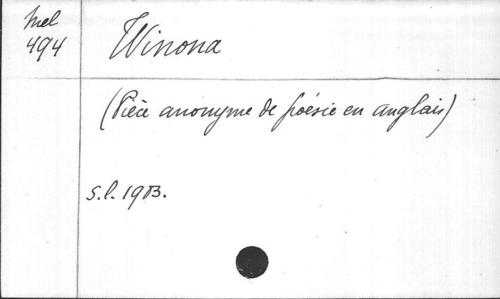 Mel
494
Winona
(Pièce anonyme de poésie en anglais)
s.l. 1903.